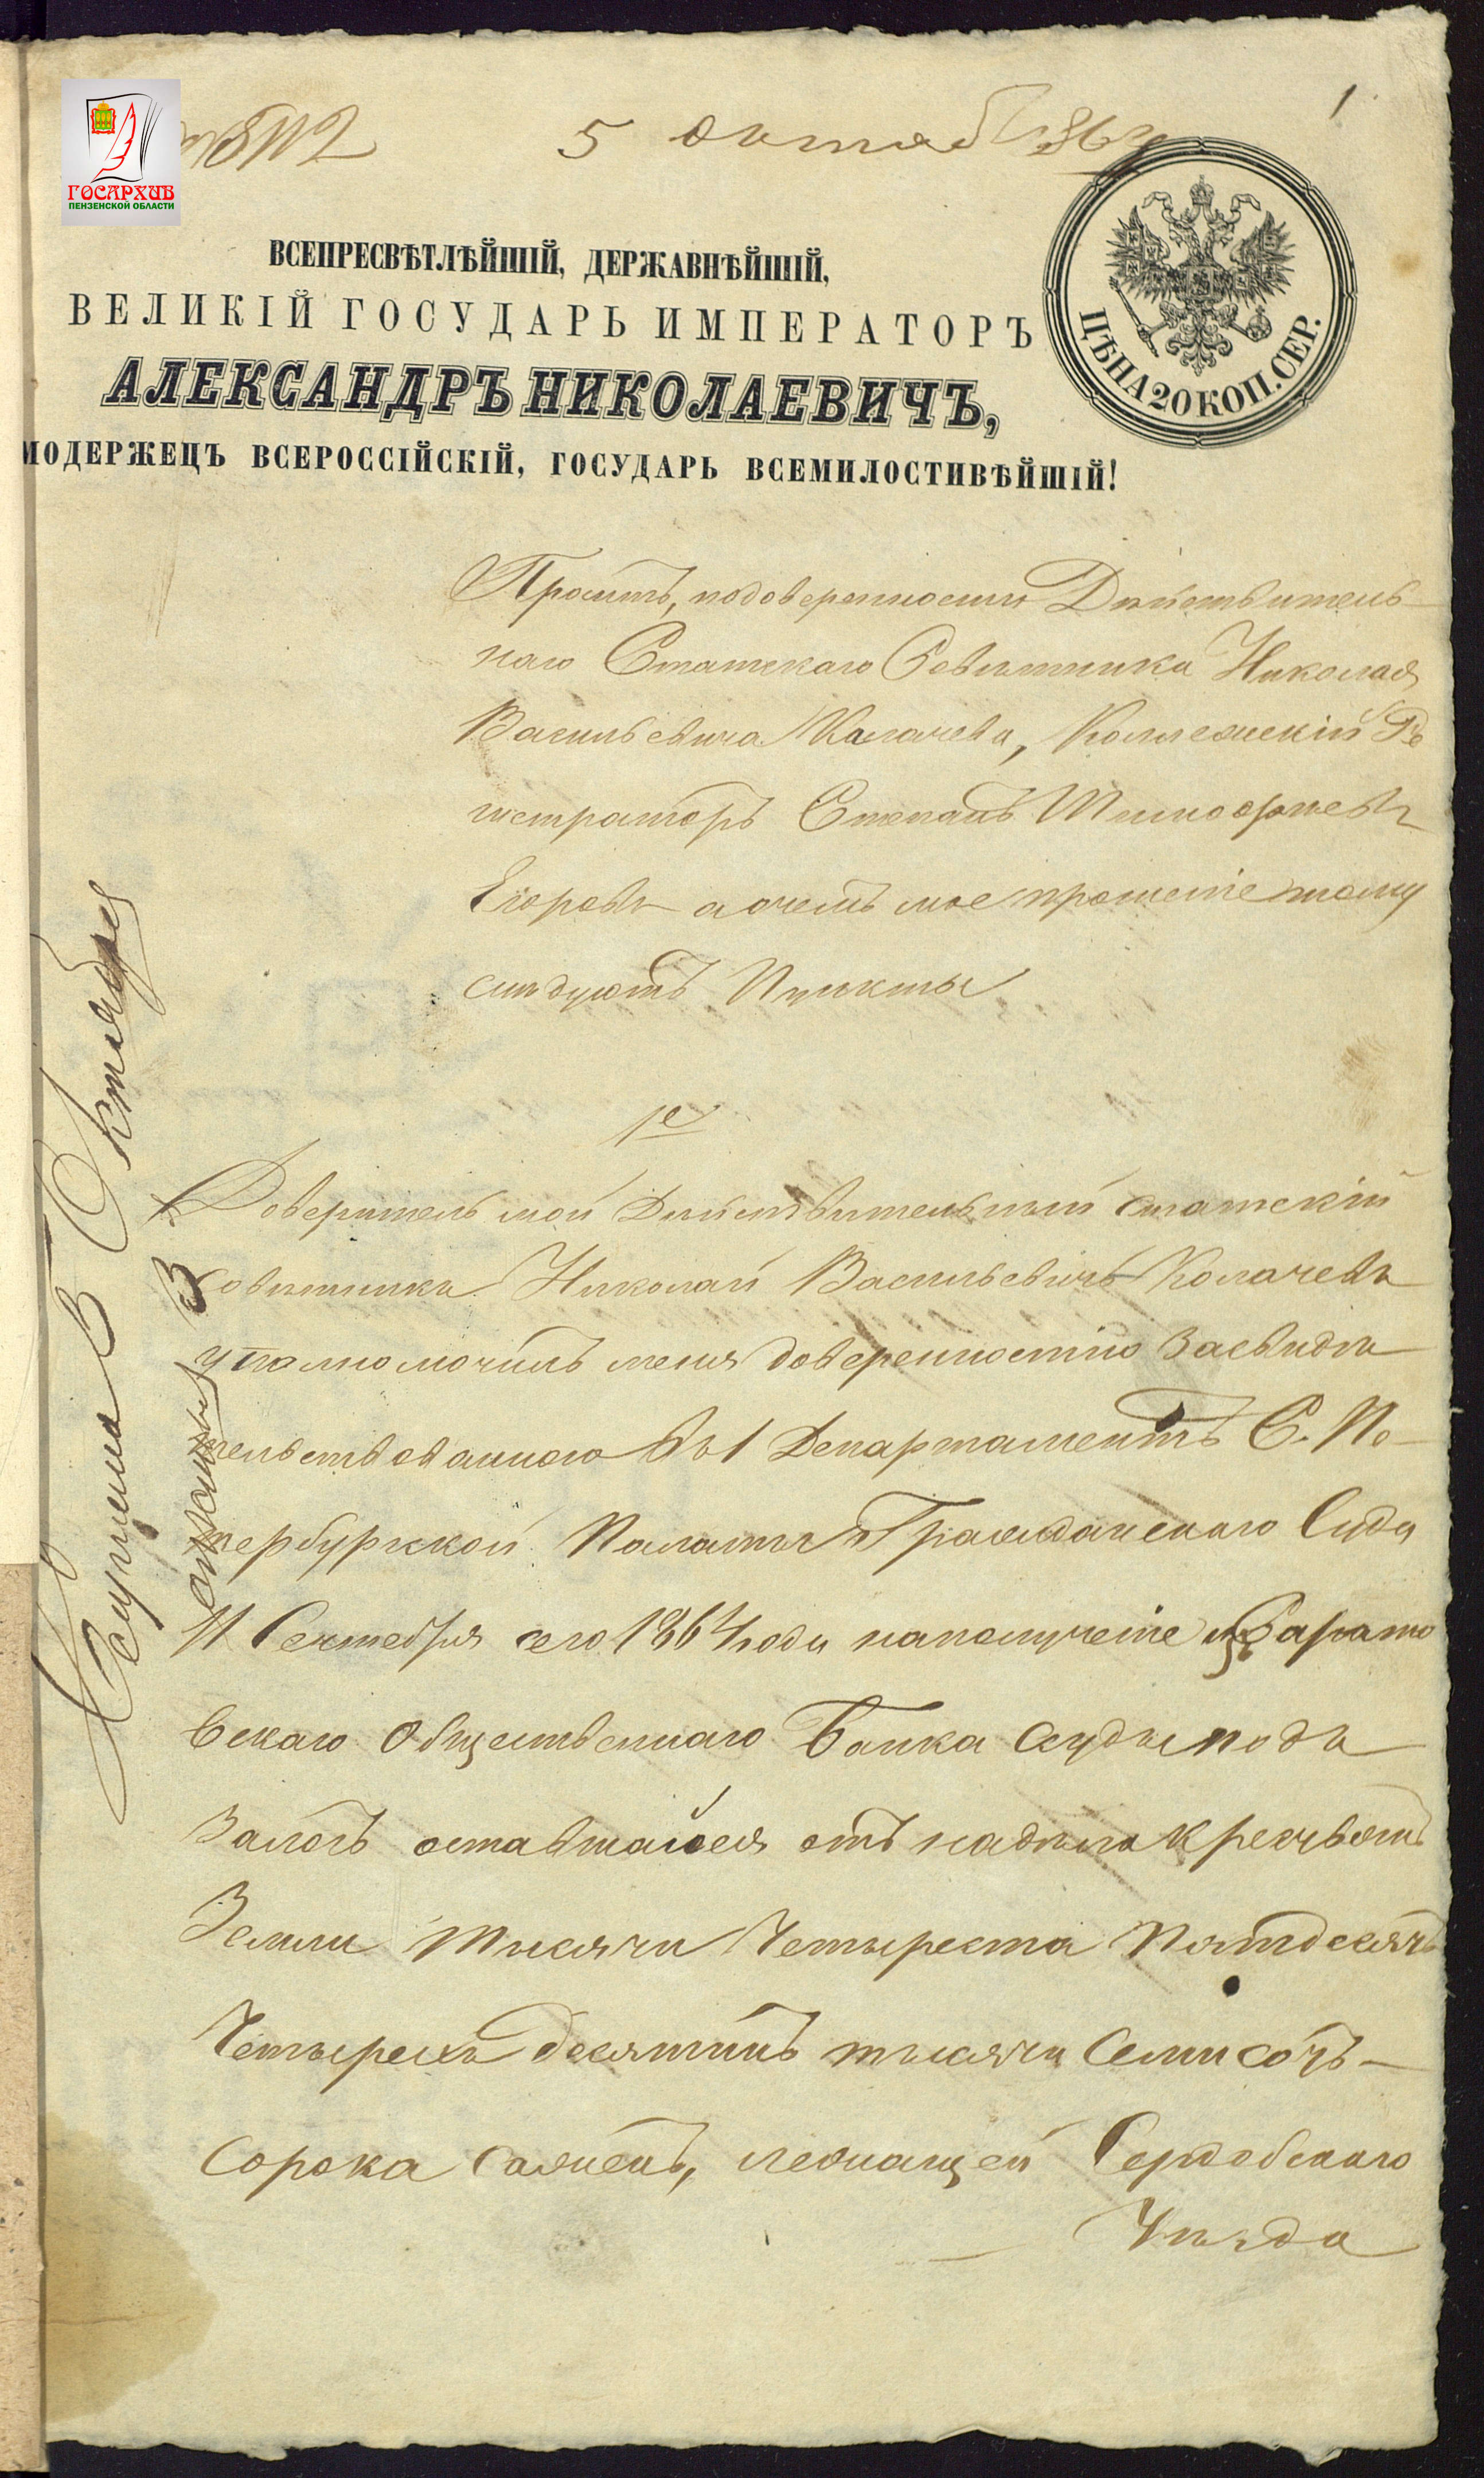 1
5 Октяб 1864
ГОСАРХИВ
ПЕНЗЕНСКОЙ ОБЛАСТИ
ЦѢНА 20 КОП. СЕР.
ВСЕПРЕСВѢТЛѢЙШІЙ, ДЕРЖАВНѢЙШІЙ,
ВЕЛИКІЙ ГОСУДАРЬ ИМПЕРАТОРЪ
АЛЕКСАНДРЪ НИКОЛАЕВИЧЪ,
МОДЕРЖЕЦЪ ВСЕРОССІЙСКІЙ, ГОСУДАРЬ ВСЕМИЛОСТИВѢЙШІЙ!
Проситъ, подоверенности Дѣйствитель
наго Статскаго Совѣтника Николая
Васильевича Калачева, Коллежскій Ре
гистраторъ Степанъ Тимофѣевъ
Егоровъ а очемъ мое прошеніе тому
слѣдуютъ Пункты
1е
Доверитель мой Дѣйствительный статскій
совѣтникъ Николай Васильевичъ Колачевъ
уполномочилъ меня доверенностію Засвидѣ
тельствованною въ 1 Департаментѣ С. Пе
тербургской Палаты Гражданскаго Суда
11 Сентября сего 1864 года наполученіе изъ Сарато
вскаго Общественнаго Банка ссуды подъ
Залогъ оставшейся отъ надѣла крестьянъ
Земли тысячи Четыреста Пятдесятъ
Четырехъ десятинъ тысячи Семисотъ
Сорока Саженъ, лежащей Сердобскаго
Уѣзда
Слушена 5 Октября